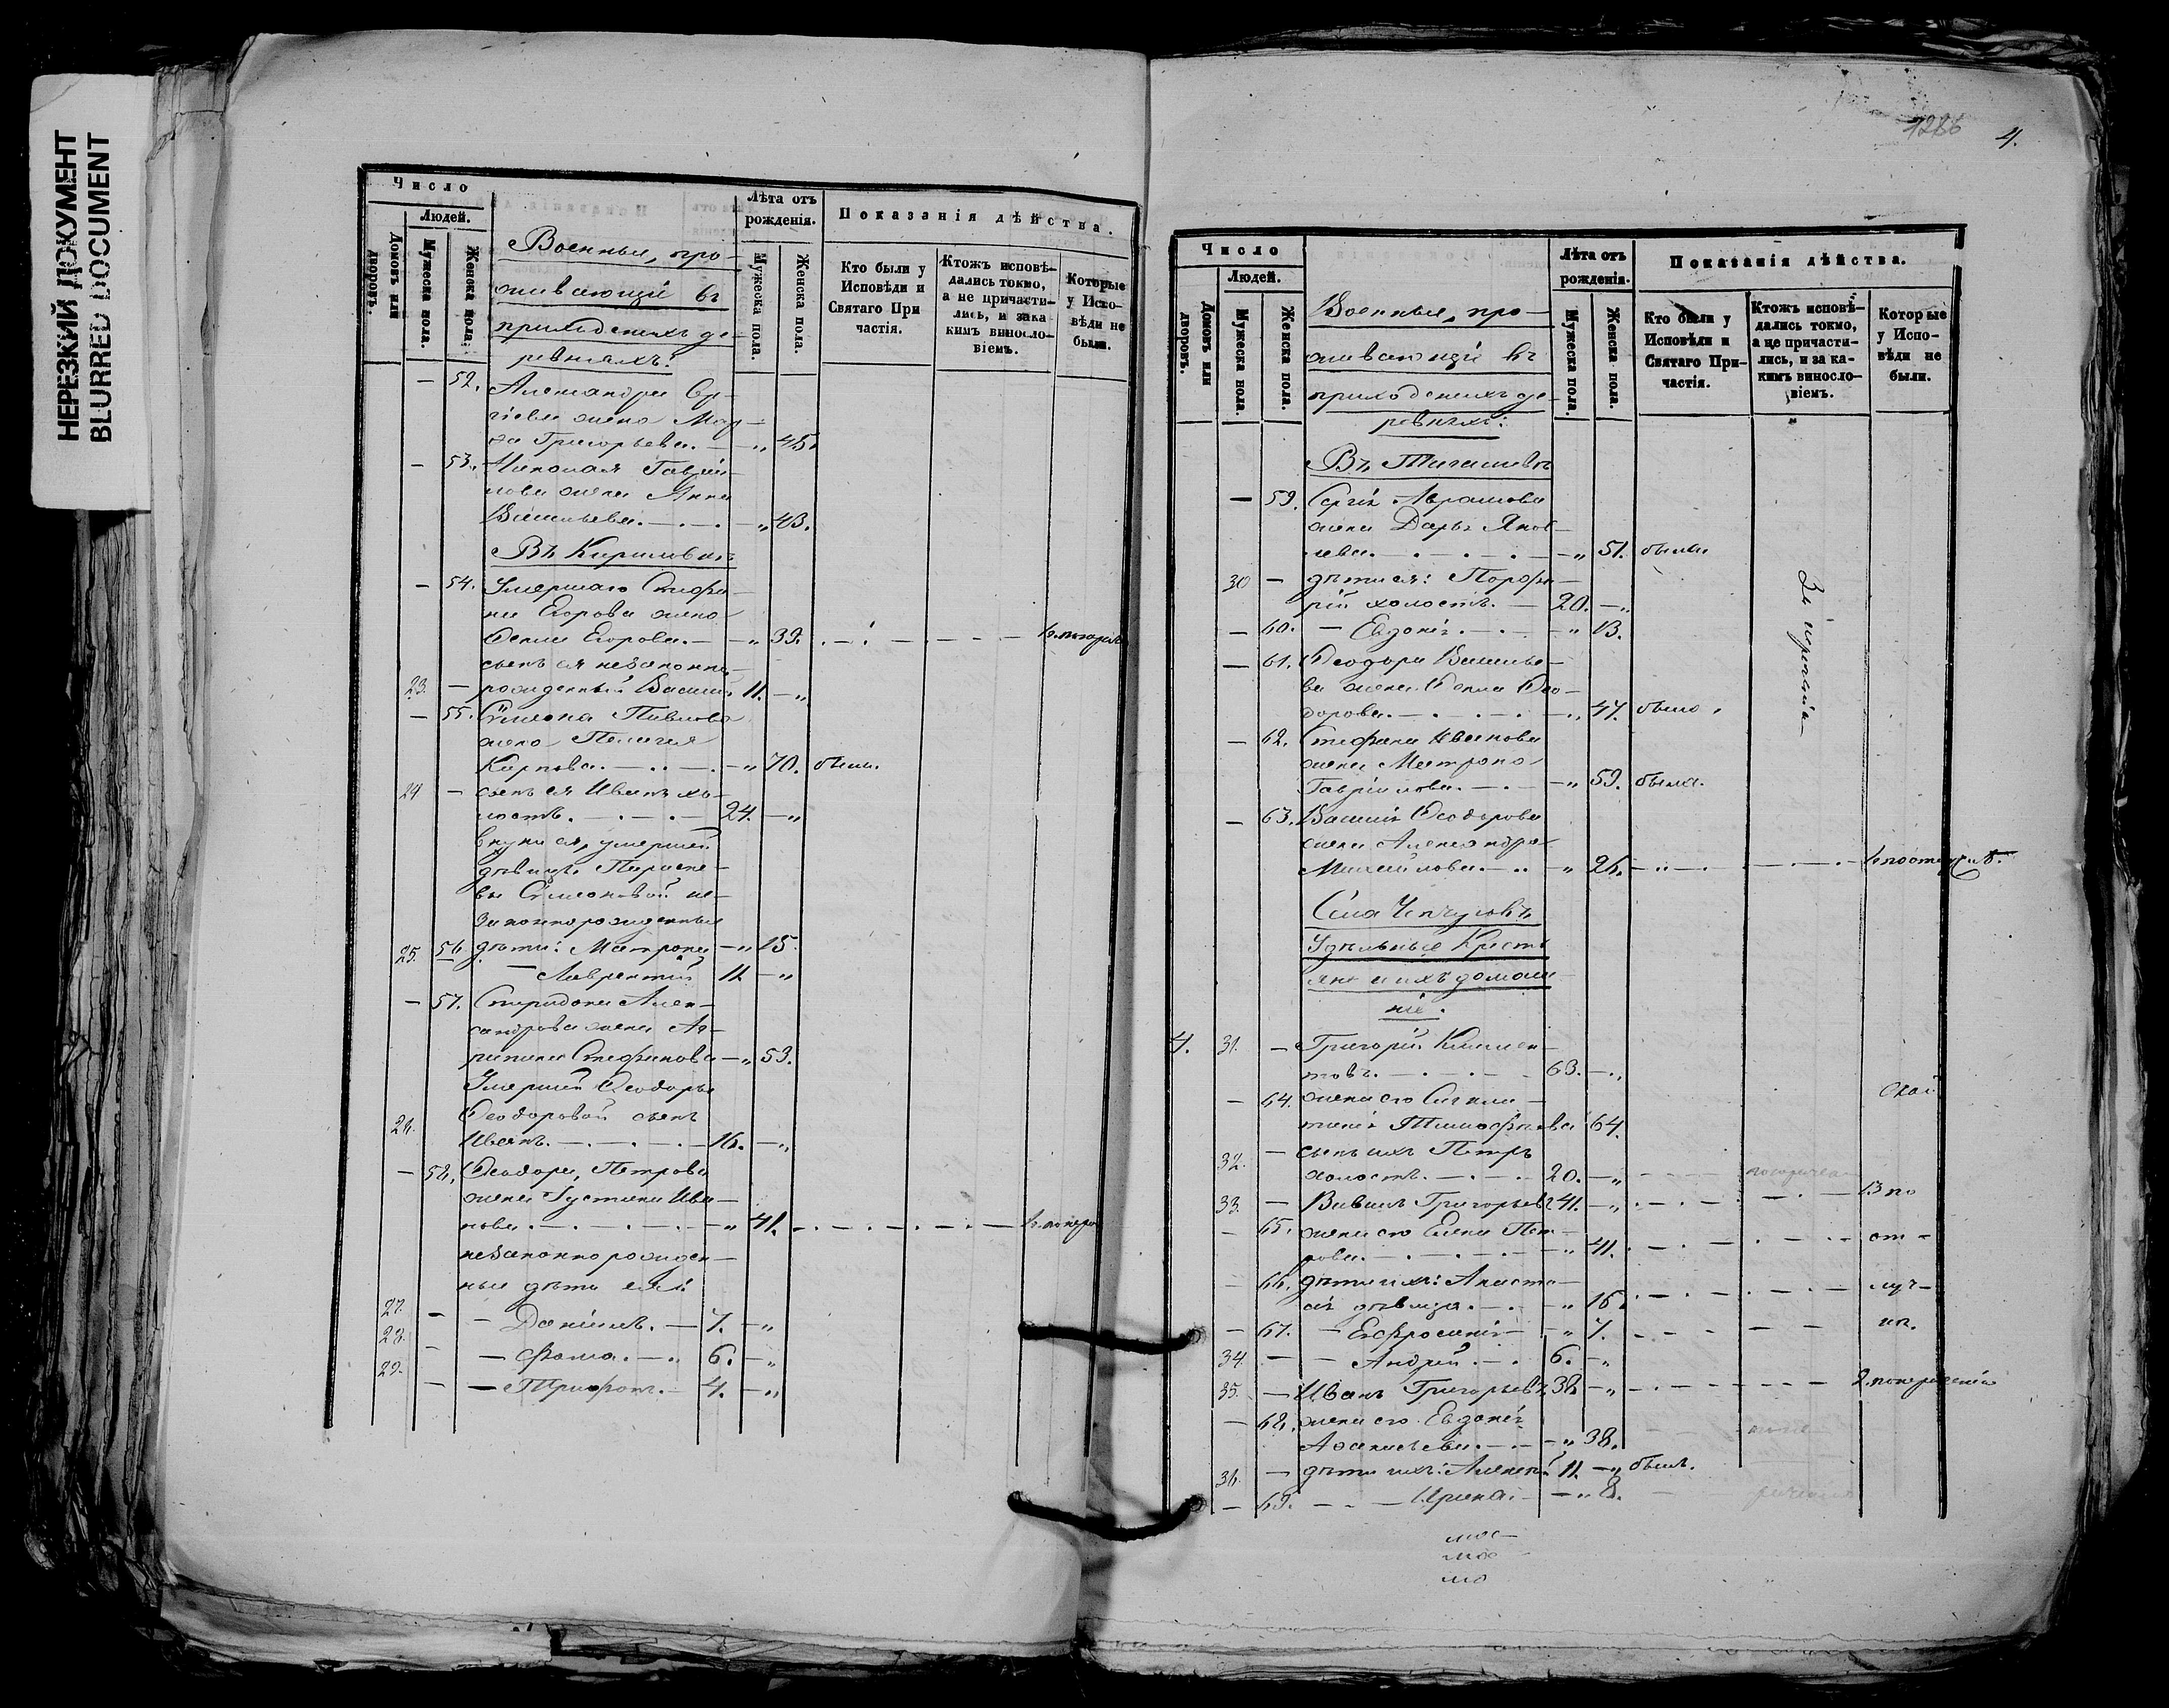 НЕРЕЗКИЙ ДОКУМЕНТ
BLURRED DOCUMENT
Число
Людей.
Домовъ или дворовъ.
Мужеска пола.
Женска пола.
Военныя, про-
живающiя въ
приходскихъ де-
ревняхъ:
Лѣта отъ рожденiя.
Мужеска пола.
Женска пола.
Показанiя дѣйства.
Кто были у Исповѣди и Святаго При частiя.
Ктожъ исповѣ- дались токмо, а не причасти- лись, и зака кимъ винословiемъ.
Которые у Испо- вѣди не были.
— 52. Александра Сер-
гiева жена Мар-
ѳа Григорьева. — „ 45.
— 53. Николая Гаврiи-
лова жена Анна
Васильева. — „ 43.
Въ Кириловкѣ
— 54. Умершаго Стефа-
на Егорова жена
Ѳекла Егорова. — „ 39.
сынъ ея незаконно-
23. — рожденный Василiй 11. — „
— 55. Сѵмеона Павлова
жена Пелагея
Карпова. — „ 70. была.
24 — сынъ ея Иванъ хо-
лостъ. 24. — „
внуки ея, умершей
дѣвицы Параске-
вы Сѵмеоновой не-
законнорожденные
56. дѣти: Матрона — „ 15.
25. — Лаврентiй 11. — „
— 57. Спиридона Алек-
сандрова жена Аг-
рипина Стефанова — „ 53.
Умершей Ѳеодоры
Ѳеодоровой сынъ
26. Иванъ. 16. — „
— 58. Ѳеодора Петрова
жена Iустина Ива-
нова. — „ 41.
незаконнорожден-
ные дѣти ея:
27. — — Данiилъ. — 7. — „
28. — — Ѳома. — 6. — „
29. — — Трифонъ. — 4. — „
1286
4.
Число
Людей.
Домовъ или дворовъ.
Мужеска пола.
Женска пола.
Военныя, про-
живающiя въ
приходскихъ де-
ревняхъ:
Лѣта отъ рожденiя.
Мужеска пола.
Женска пола.
Показанiя дѣйства.
Кто были у Исповѣди и Святаго При- частiя.
Ктожъ исповѣ- дались токмо, а не причасти- лись, и за ка- кимъ винослo- вiемъ.
Которые у Испо- вѣди не были.
— 59. Сергiя Аврамова
жена Дарья Яков-
лева. — „ 51. была
30 — дѣти ея: Порфи-
рiй холостъ. — 20. — „
— 60. — Евдокiя. — „ 13.
— 61. Ѳеодора Василье-
ва жена Ѳекла Ѳео-
дорова. — „ 47. была.
— 62. Стефана Иванова
жена Матрона
Гаврiилова. — „ 59. была.
— 63. Василiя Ѳеодорова
жена Александра
Михайлова. — „ 26.
Удѣльные Кресть-
яне и ихъ домаш-
нiе.
4. 31. — Григорiй Климен-
товъ. 63. — „
— 64. жена его
Тимоѳеева 64.
32. — сынъ ихъ Петръ
холостъ. 20. — „
33. — Григорьевъ 41. — „
— 65. жена его Елена Пет-
рова. — „ 41.
— 66. дѣти ихъ: Анаста-
сiя дѣвица. — „ 16.
— 67. — Евфросинiя — „ 7.
34. — — Андрей. — 6. — „
35. — Иванъ Григорьевъ 38. — „
— 68. жена его Евдокiя
Аѳанасьева. — „ 38.
36. — дѣти ихъ: Алексѣй 11. — „ былъ.
— 69. — Ирина. — „ 8.